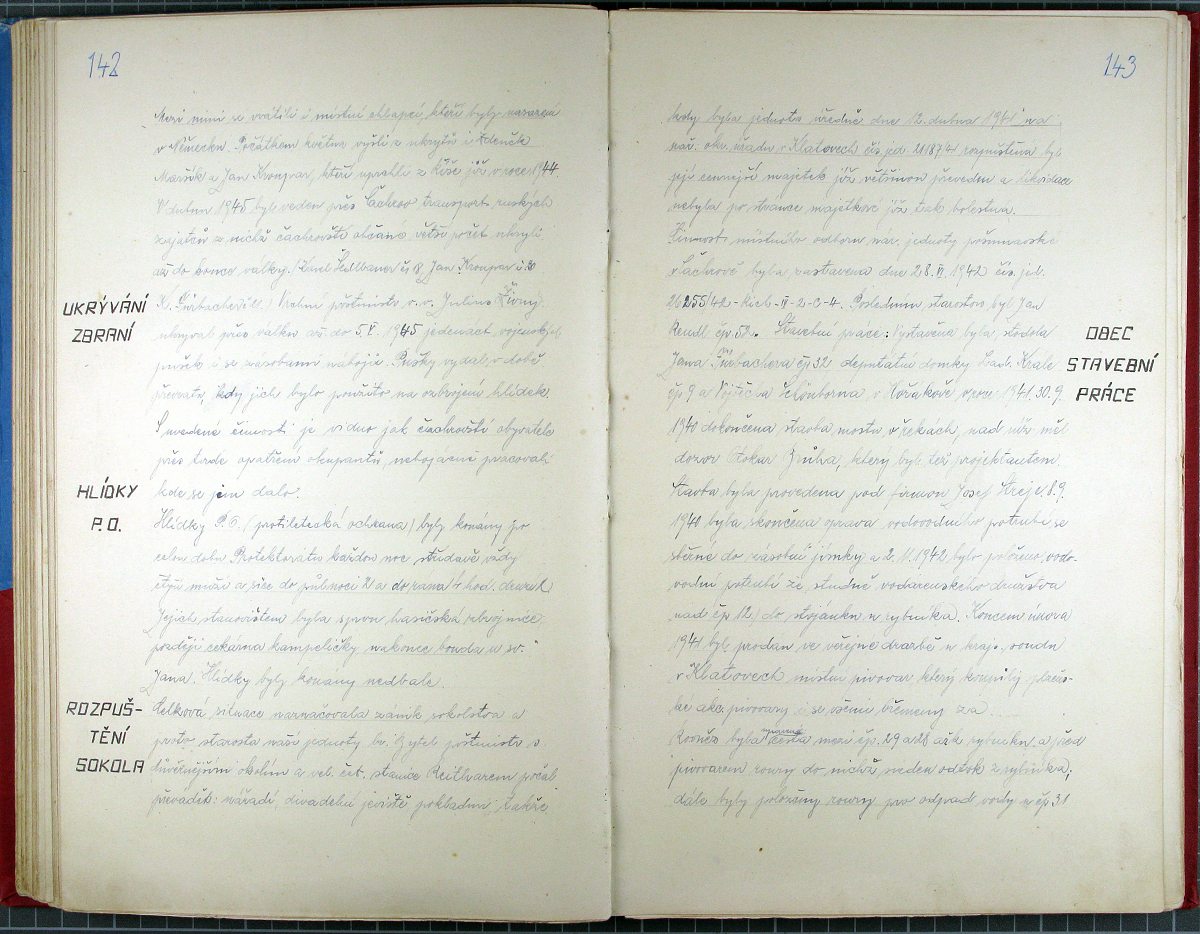 142
Mezi nimi se vrátili i místní chlapci, kteří byly nasazeni
v Německu. Počátkem května vyšli z úkrytů i Zdeněk
Maršík a Jan Kroupar, kteří uprchli z Říše již v roce 1944.
V dubnu 1945 byl veden přes Čachrov transport ruských
zajatců z nichž čachrovští občané větší počet ukryli
až do konce války. (Karel Sedlbauer čp 8, Jan Kroupar č 30
UKRÝVÁNÍ
ZBRANÍ
K. Girbacher Vrchní poštmistr v. v. Julius Živný
ukrýval přes válku až do 5 V. 1945 jedenáct vojenských
pušek i se zásobami nábojů. Pušky vydal v době
převratu, kdy jich bylo použito na ozbrojení hlídek.
S uvedené činnosti je vidno jak čachrovští obyvatelé
přes tvrdé opatření okupantů, nebojácně pracovali
kde se jim dalo.
HLÍDKY
P.O.
Hlídky P.O. (protiletecká ochrana) byly konány po
celou dobu Protektorátu každou noc střídavě vždy
čtyři muži a sice do půlnoci 2 a do rana 4 hod. druzí
Jejich stanovištěm byla sprvu hasičská zbrojnice
později čekárna kampeličky nakonec bouda u sv.
Jana. Hlídky byly konány nedbale.
ROZPUŠ-
TĚNÍ
SOKOLA
Celková situace naznačovala zánik sokolstva a
proto starosta naší jednoty br. Bytel poštmistr s
důvěrnějším okolím a vel. čet. stanice Reithareem počal
převádět: nářadí, divadelní jeviště pokladnu, takže
143
kdy byla jednota úředně dne 12. dubna 1941 na
nář. okr. úřadu v Klatovech čís. jed. 21187/41 rozpuštěna byl
její cennější majetek již většinou převeden a likvidace
nebyla po stránce majetkové již tak bolestná.
Činnost místního odboru nár. jednoty pošumavské
v Čachrově byla zastavena dne 28. II. 1942 čís. jed.
26255/42-Kicb-II-2-C-4. Posledním starostou byl Jan
Rendl čp. 52. Stavební práce: Vystavěna byla stodola
OBEC
STAVEBNÍ
PRÁCE
Jana Girbachera čp 32 deputátní domky Lad. Krále
čp 9 a Vojtěcha Schönborna v Kořákově v roce 1941. 30. 9.
1940 dokončena stavba mostu v řekách, nad níž měl
dozor Otokar Zruha, který byl též projektantem.
Stavba byla provedena pod firmou Josef Streje 8. 9.
1940 byla skončena oprava vodovodního potrubí se
sběrné do zásobní jímky a 2. 11. 1942 bylo položeno vodo-
vodní potrubí ze studně vodárenského družstva
nad čp 12 do stojánku u rybníka. Koncem února
1941 byl prodán ve veřejné dražbě u kraj. soudu
v Klatovech místní pivovar který koupily plzeň-
ské akc. pivovary i se všemi břemeny za
Rovněž byla upravena cesta mezi čp. 29 a 28 až k rybníku a před
pivovarem roury do nichž sveden odtok z rybníka;
dále byly položeny roury pro odpad vody u čp 31